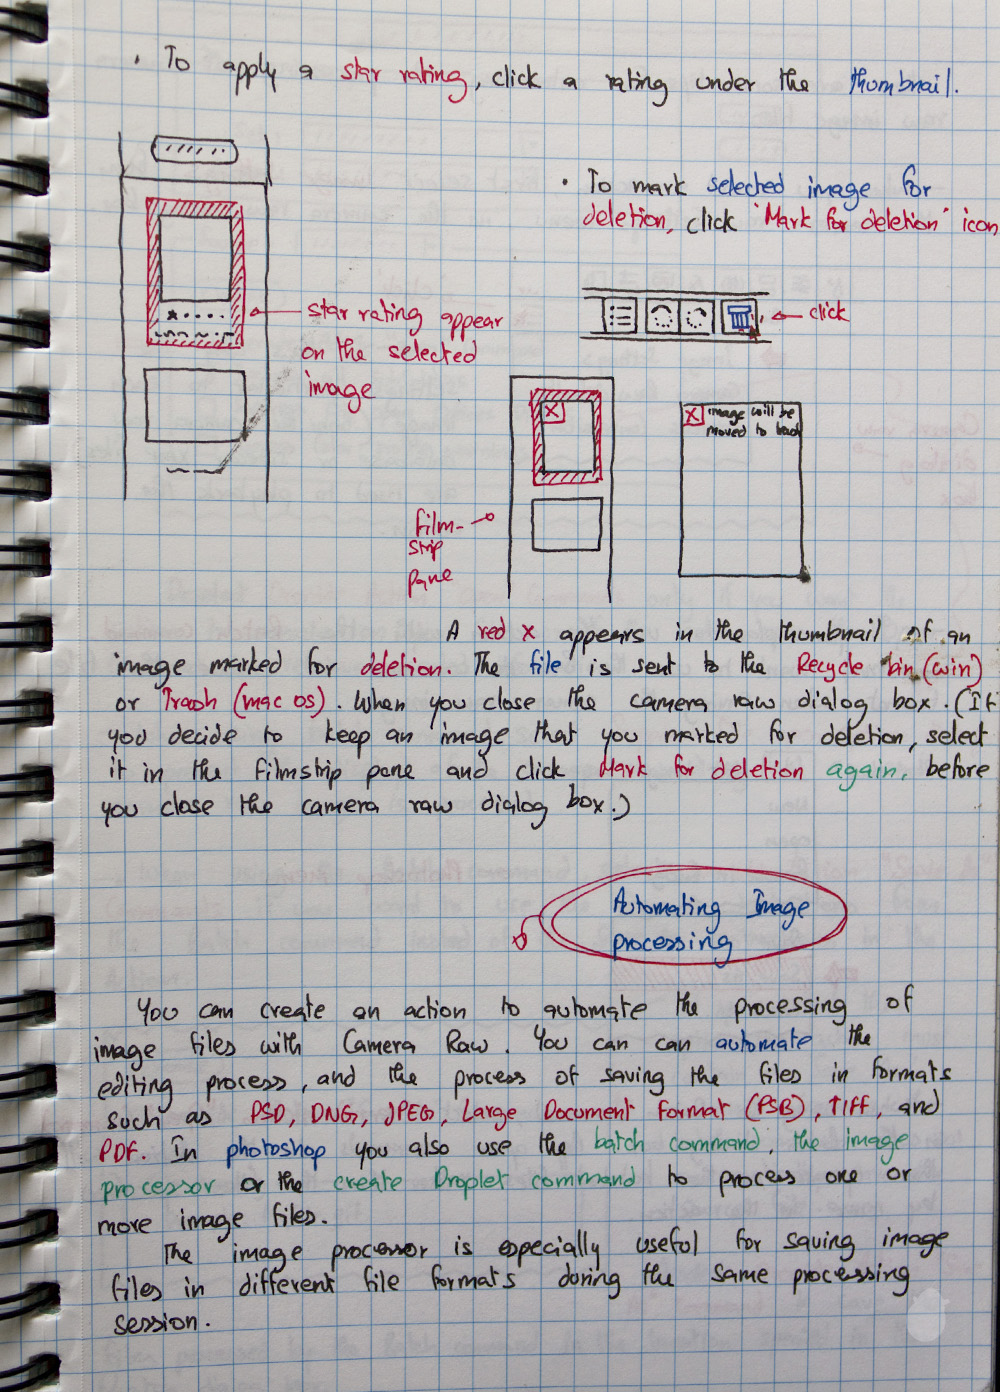 • To apply a star rating, click a rating under the thumbnail.
• To mark selected image for
deletion, click "Mark for deletion" icon
click
star rating appear
on the selected
image
X
X image will be
moved to back
film-
strip
pane
A red x appears in the thumbnail of an
image marked for deletion. The file is sent to the Recycle bin (win)
or Trash (mac os). When you close the camera raw dialog box. (If
you decide to keep an image that you marked for deletion, select
it in the filmstrip pane and click Mark for deletion again, before
you close the camera raw dialog box.)
Automating Image
processing
You can create an action to automate the processing of
image files with Camera Raw. You can can automate the
editing process, and the process of saving the files in formats
such as PSD, DNG, JPEG, Large Document Format (PSB), TIFF, and
PDF. In photoshop you also use the batch command, the image
processor or the create Droplet command to process one or
more image files.
The image processor is especially useful for saving image
files in different file formats during the same processing
session.